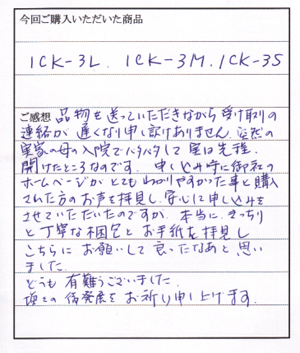 今回ご購入いただいた商品
1CK-3L. 1CK-3M. 1CK-3S
ご感想 品物を送っていただきながら受け取りの
連絡が遅くなり申し訳ありません。突然の
実家の母の入院でバタバタして実は先程、
開けたところなのです。申し込み時に御社の
ホームページがとてもわかりやすかった事と購入
された方のお声を拝見し、安心して申し込みを
させていただいたのですが、本当に、きっちり
と丁寧な梱包とお手紙を拝見し
こちらにお願いして良かったなあと思い
ました。
どうも有難うございました。
御社の御発展をお祈り申し上げます。